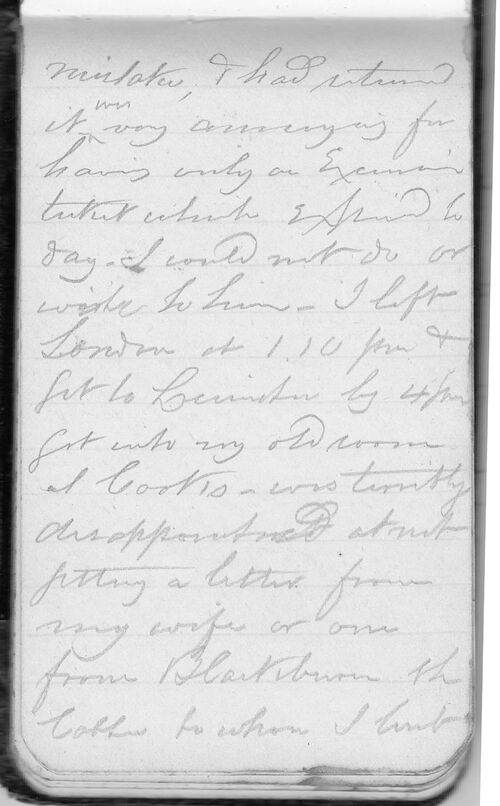 mistake, & had returned
it was very annoying for
having only an Excursion
ticket which expired to
day - I could not do or
write to him - I left
London at 1.10 pm &
got to Leicester by 4 pm
got into my old room
at Cooks - was terribly
disappointed at not
getting a letter from
my wife or one
from Blackburn the
to whom I lent